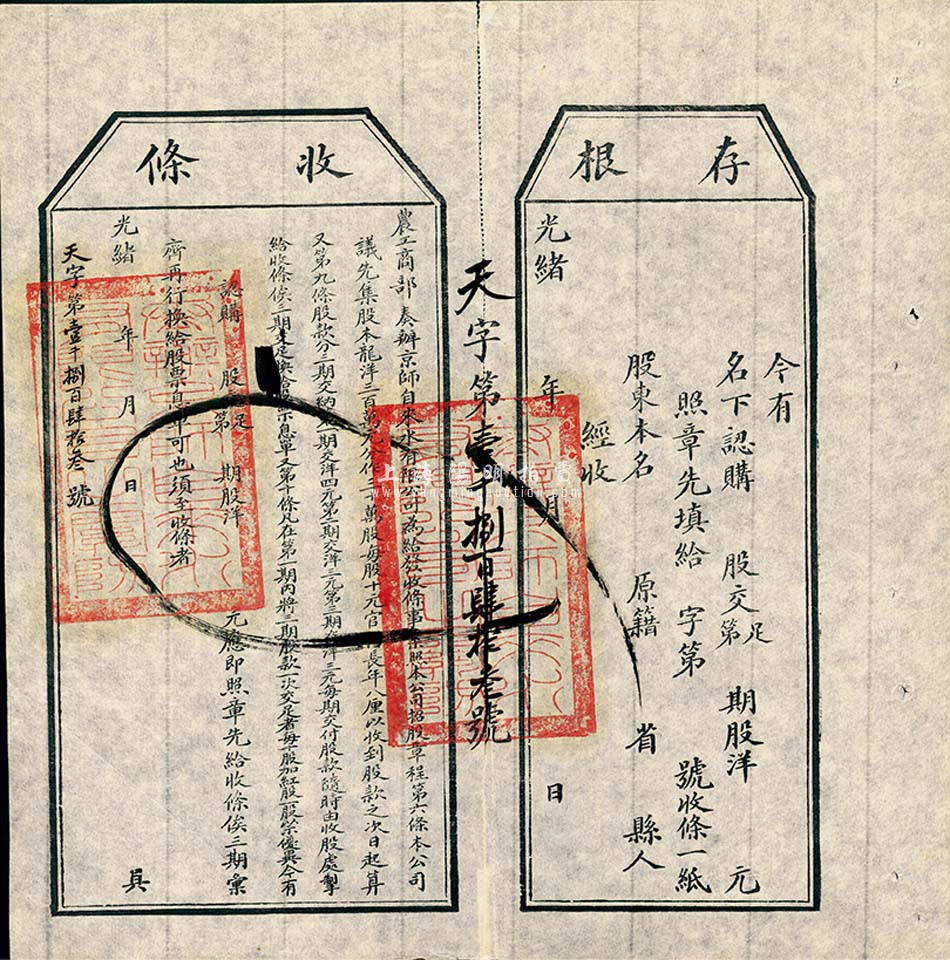 存根
今有
名下認購 股交足第 期股洋 元
照章先填給 字第 號收條一紙
股東本名 原籍 省 縣人
經收
光緒 年 月 日
天字第壹千捌百肆拾叁號
收條
農工商部奏辦京師自來水有限公司為給發收條事 照本公司招股章程第六條本公司
議先集股本龍洋三百萬元分作三十萬股每股十元官 長年八厘以收到股款之次日起算
又第九條股款分三期交納第一期交洋四元第二期交洋三元第三期交洋三元每期交付股款隨時由收股處掣
給收條俟三期交足換給股票息單又第十條凡在第一期內將三期股款一次交足者每十股加紅股一股崇優異今有
認購 股 足第 期股洋 元應即照章先給收條俟三期彙
齊再行換給股票息單可也須至收條者
光緒 年 月 日 具
天字第壹千捌百肆拾叁號